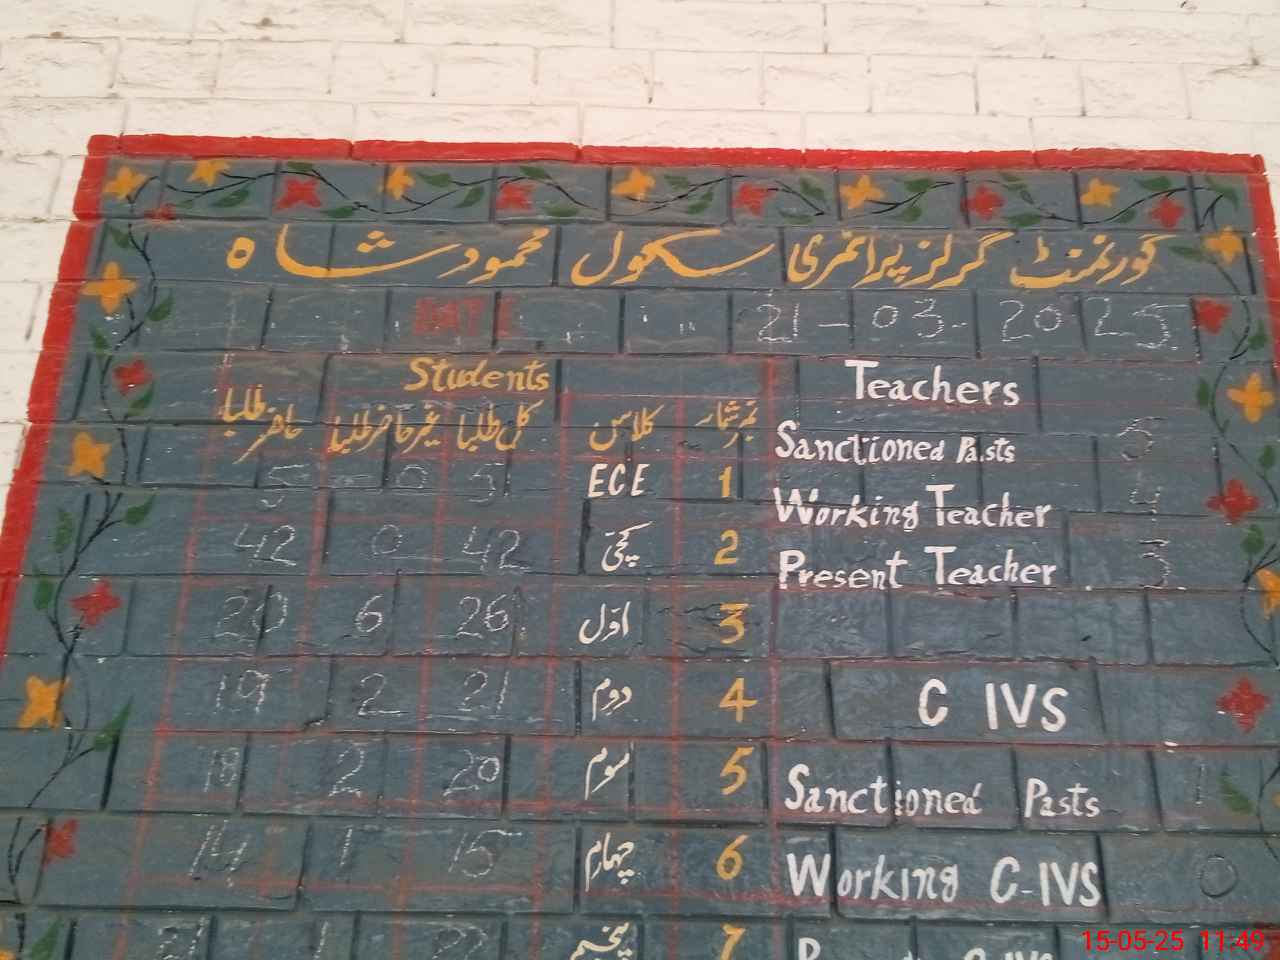 گورنمنٹ گرلز پرائمری سکول محمود شاہ
DATE 21-03-2025
Students
Teachers
نمبر شمار کلاس کل طلبا غیر حاضر طلبا حاضر طلبا
Sanctioned Pasts 5
1 ECE 5 0 5
Working Teacher 4
2 کچی 42 0 42
Present Teacher 3
3 اوّل 26 6 20
4 دوم 21 2 19
C IVS
5 سوم 20 2 18
Sanctioned Pasts 1
6 چہارم 15 1 14
Working C-IVS 0
7 پنجم 22 1 21
15-05-25 11:49